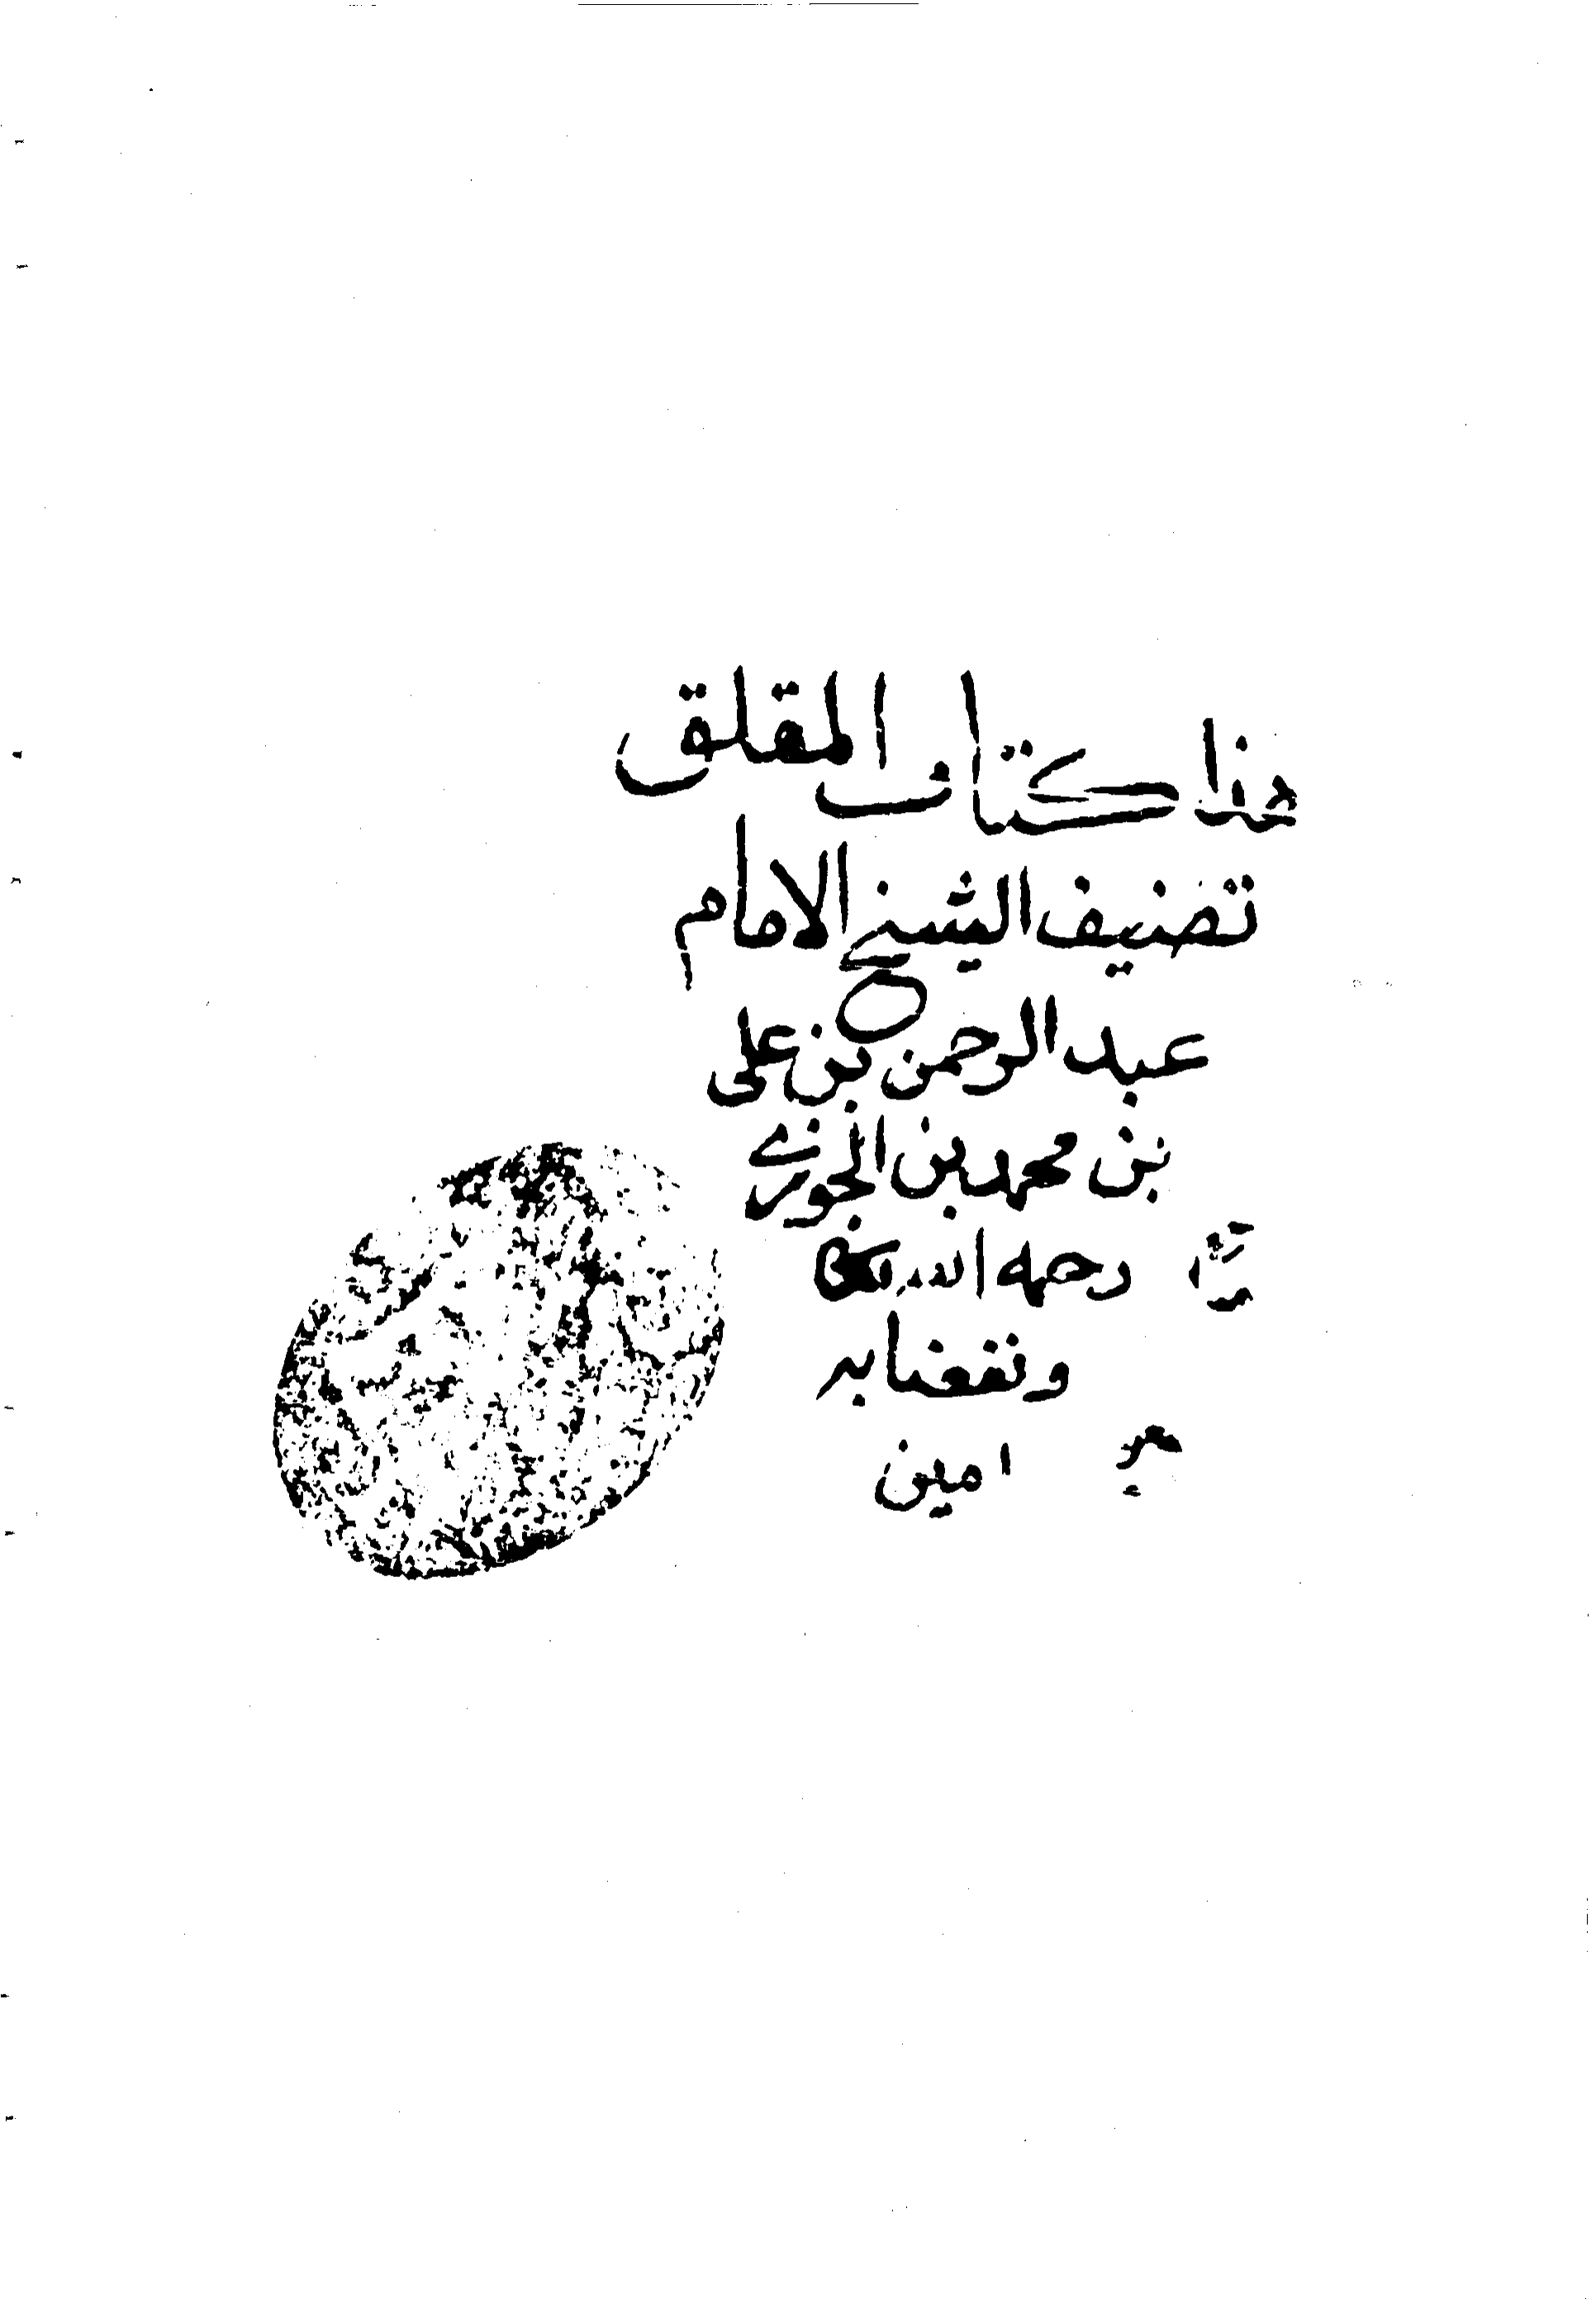 هذا كتاب المقلق
تصنيف الشيخ الامام
عبد الرحمن بن على
بن محمد بن الجوزي
رحمه الله
ونفعنا به
امين